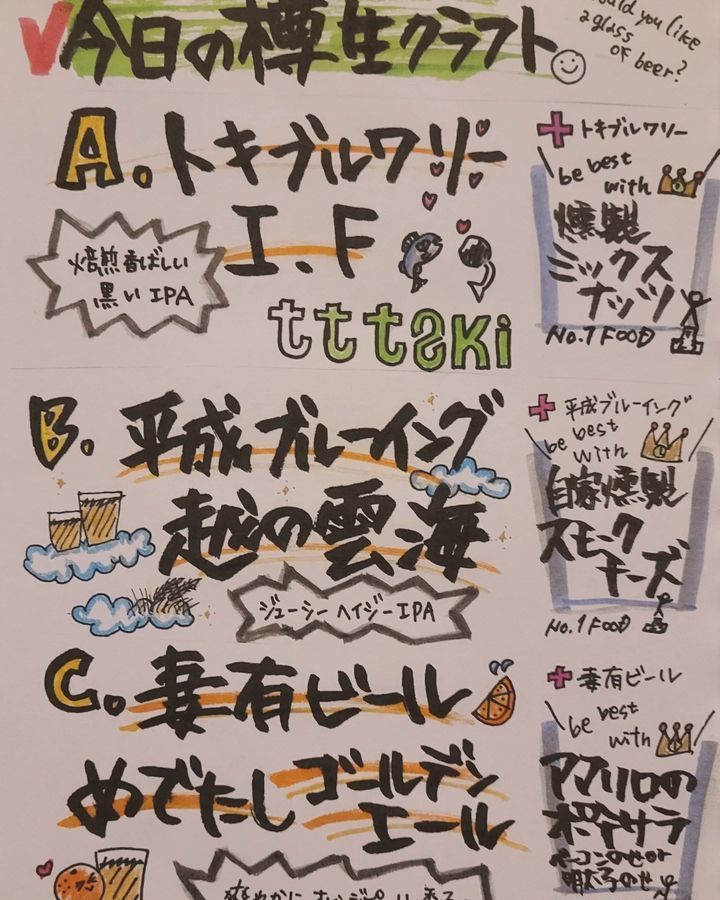 今日の樽生クラフト
would you like
a glass
of beer?
A.トキブルワリー
I.F
焙煎香ばしい
黒いIPA
ttt2ki
+トキブルワリー
be best
with
燻製
ミックス
ナッツ
No.1 FOOD
B.平成ブルーイング
越の雲海
ジューシーヘイジーIPA
+平成ブルーイング
be best
with
自家燻製
スモーク
チーズ
No.1 FOOD
C.妻有ビール
めでたし ゴールデン
エール
+妻有ビール
be best
with
アフリロの
ポテサラ
ベーコンのせor
明太子のせ